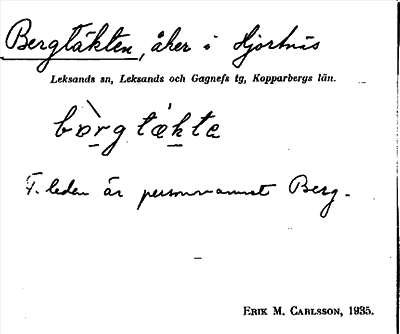 Bergtäkten, åker i Hjortnäs
Leksands sn, Leksands och Gagnefs tg, Kopparbergs län.
bò̱rgtæ̀ḵta
F. leden är personnamnet Berg.
ERIK M. CARLSSON, 1935.